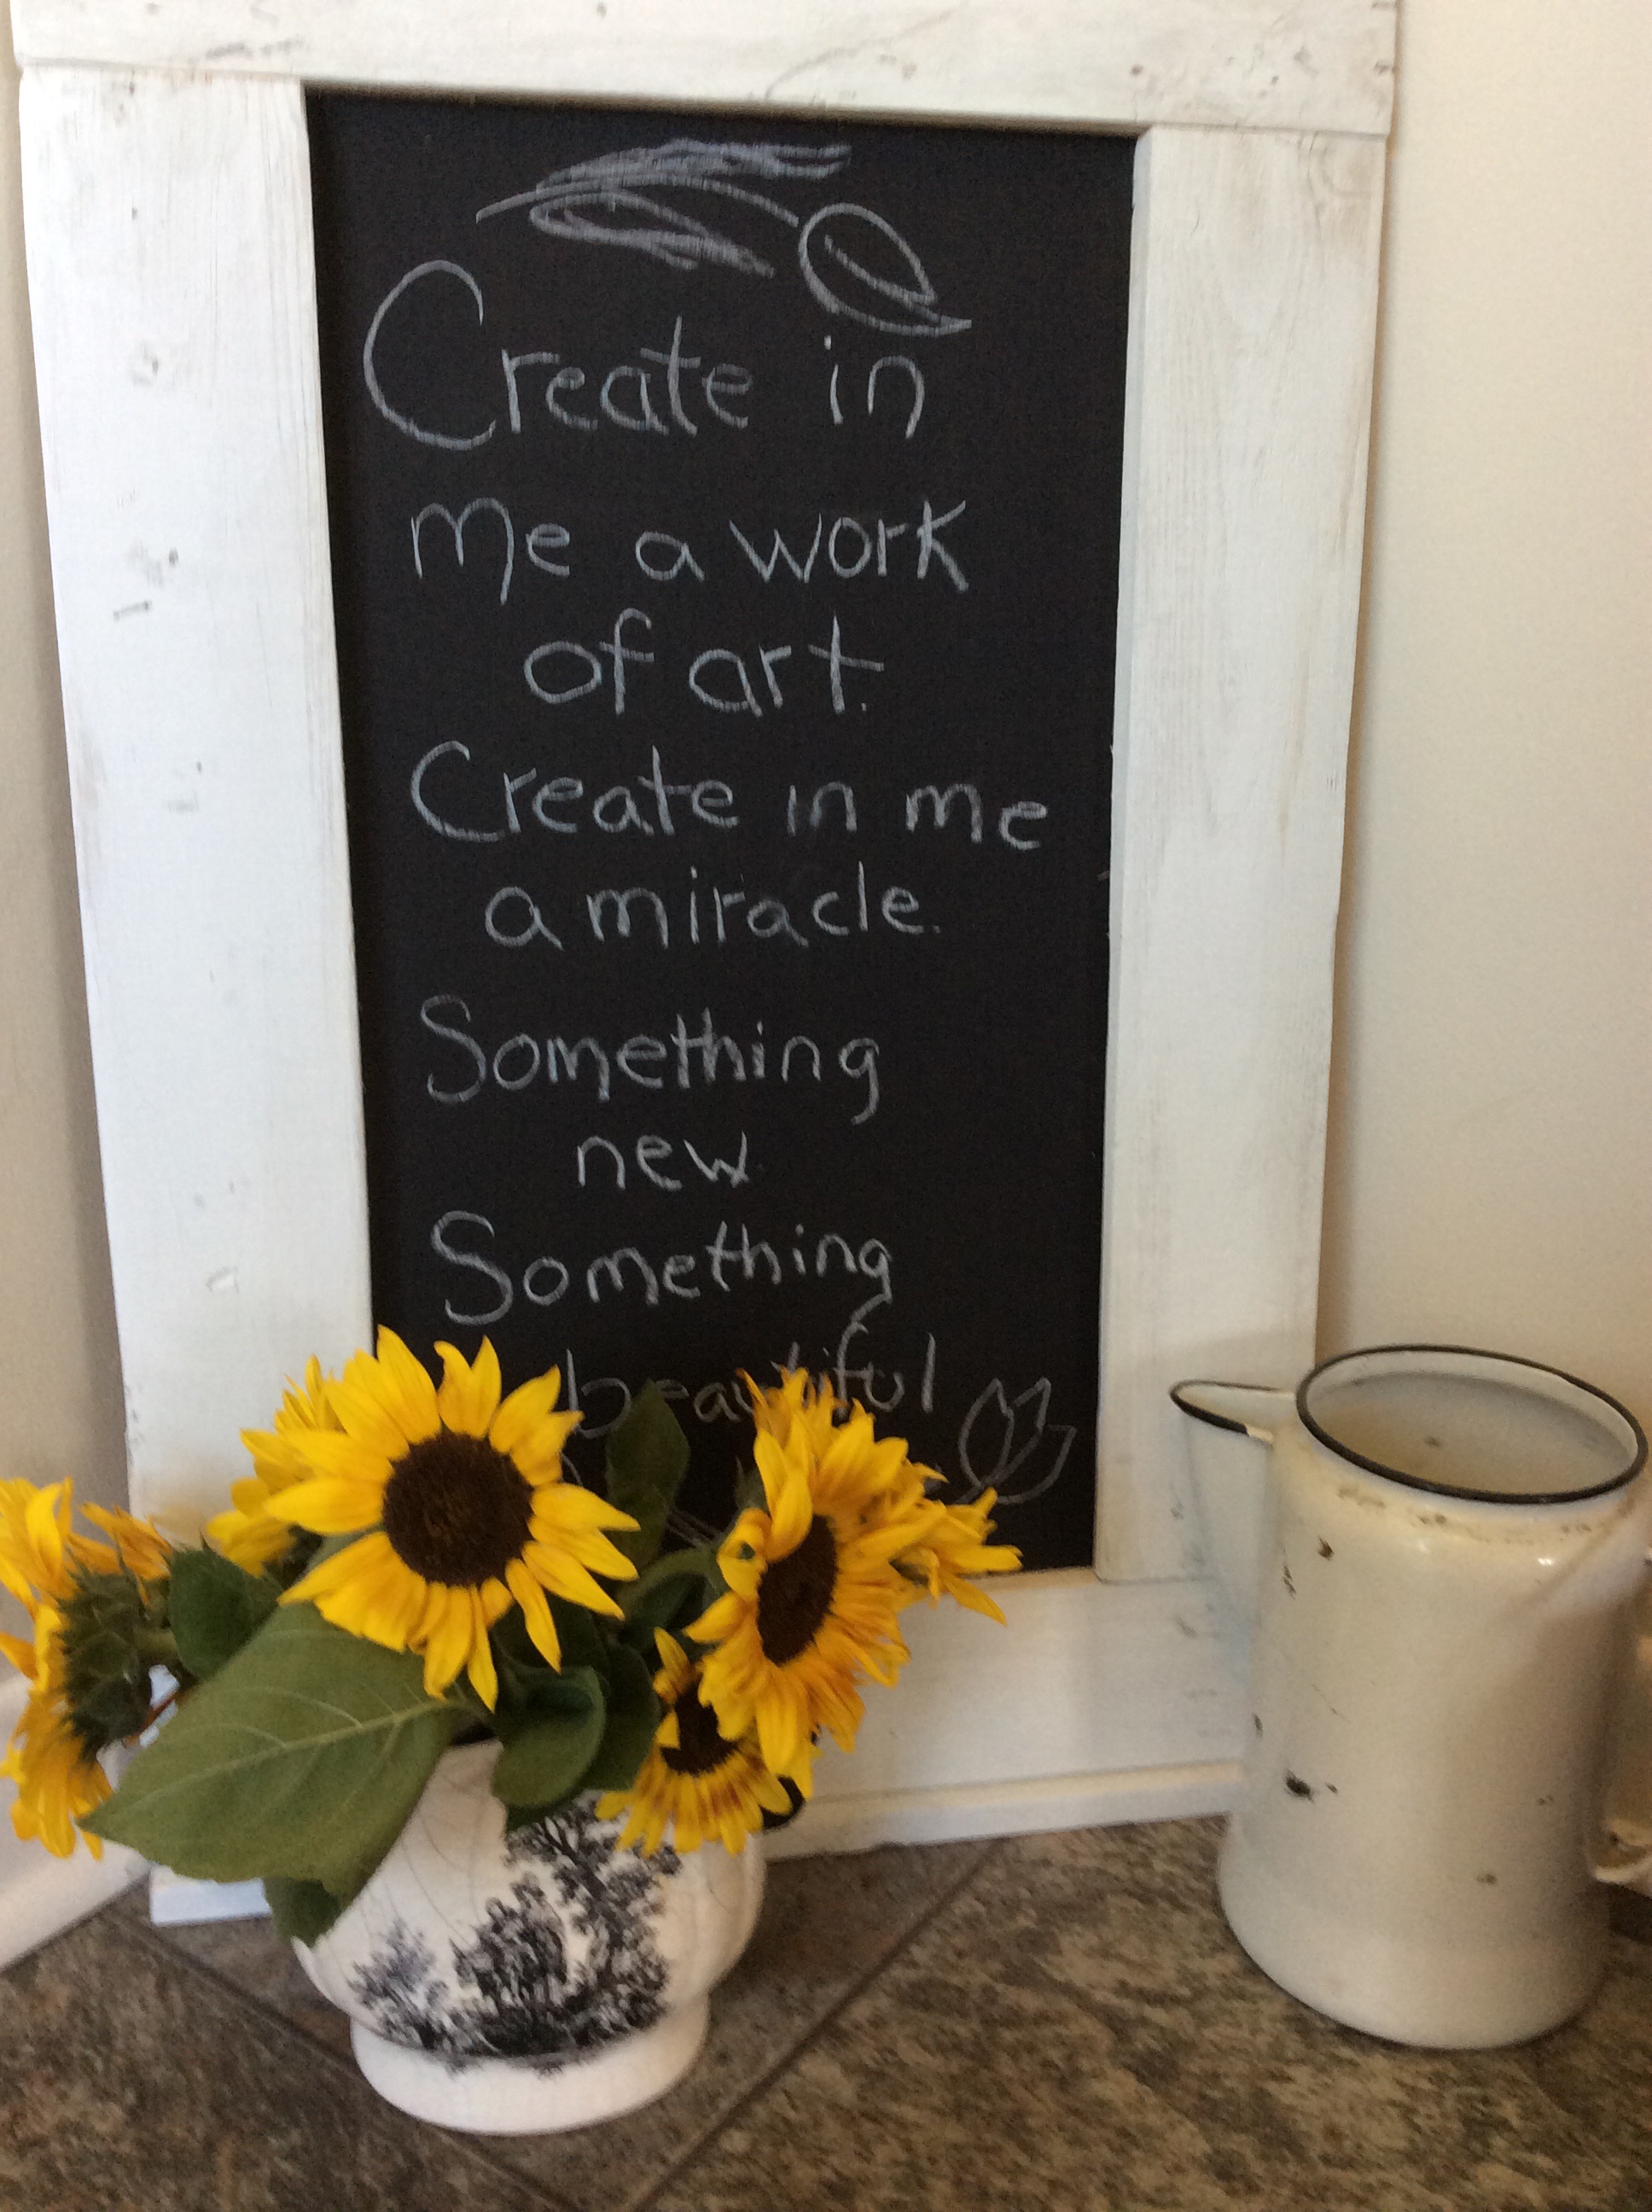 Create in
me a work
of art.
Create in me
a miracle.
Something
new
Something
beautiful